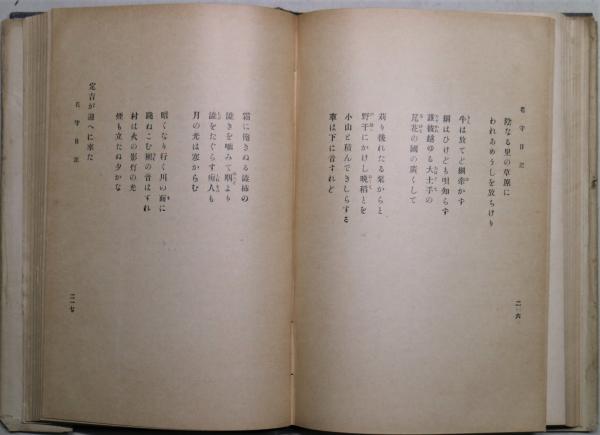 花守日記
陰なる里の草原に
われあめうしを放ちけり
牛は放てど綱牽かす
綱はひけども唄知らず
誰彼越ゆる大土手の
尾花の國の廣くして
苅り後れたる粟からと
野干にかけし晩稻とを
小山と積んできしらする
車は下に音すれど
二一六
霜に飽きぬる澁柿の
澁きを嚙みて咽より
澁をたぐらす人も
月の光は寒からむ
暗くなり行く川の面に
跳ねこむ鯝の音はすれ
村は火の影灯の光
煙も立たぬ夕かな
定吉が迎へに來た
花守日記
二一七